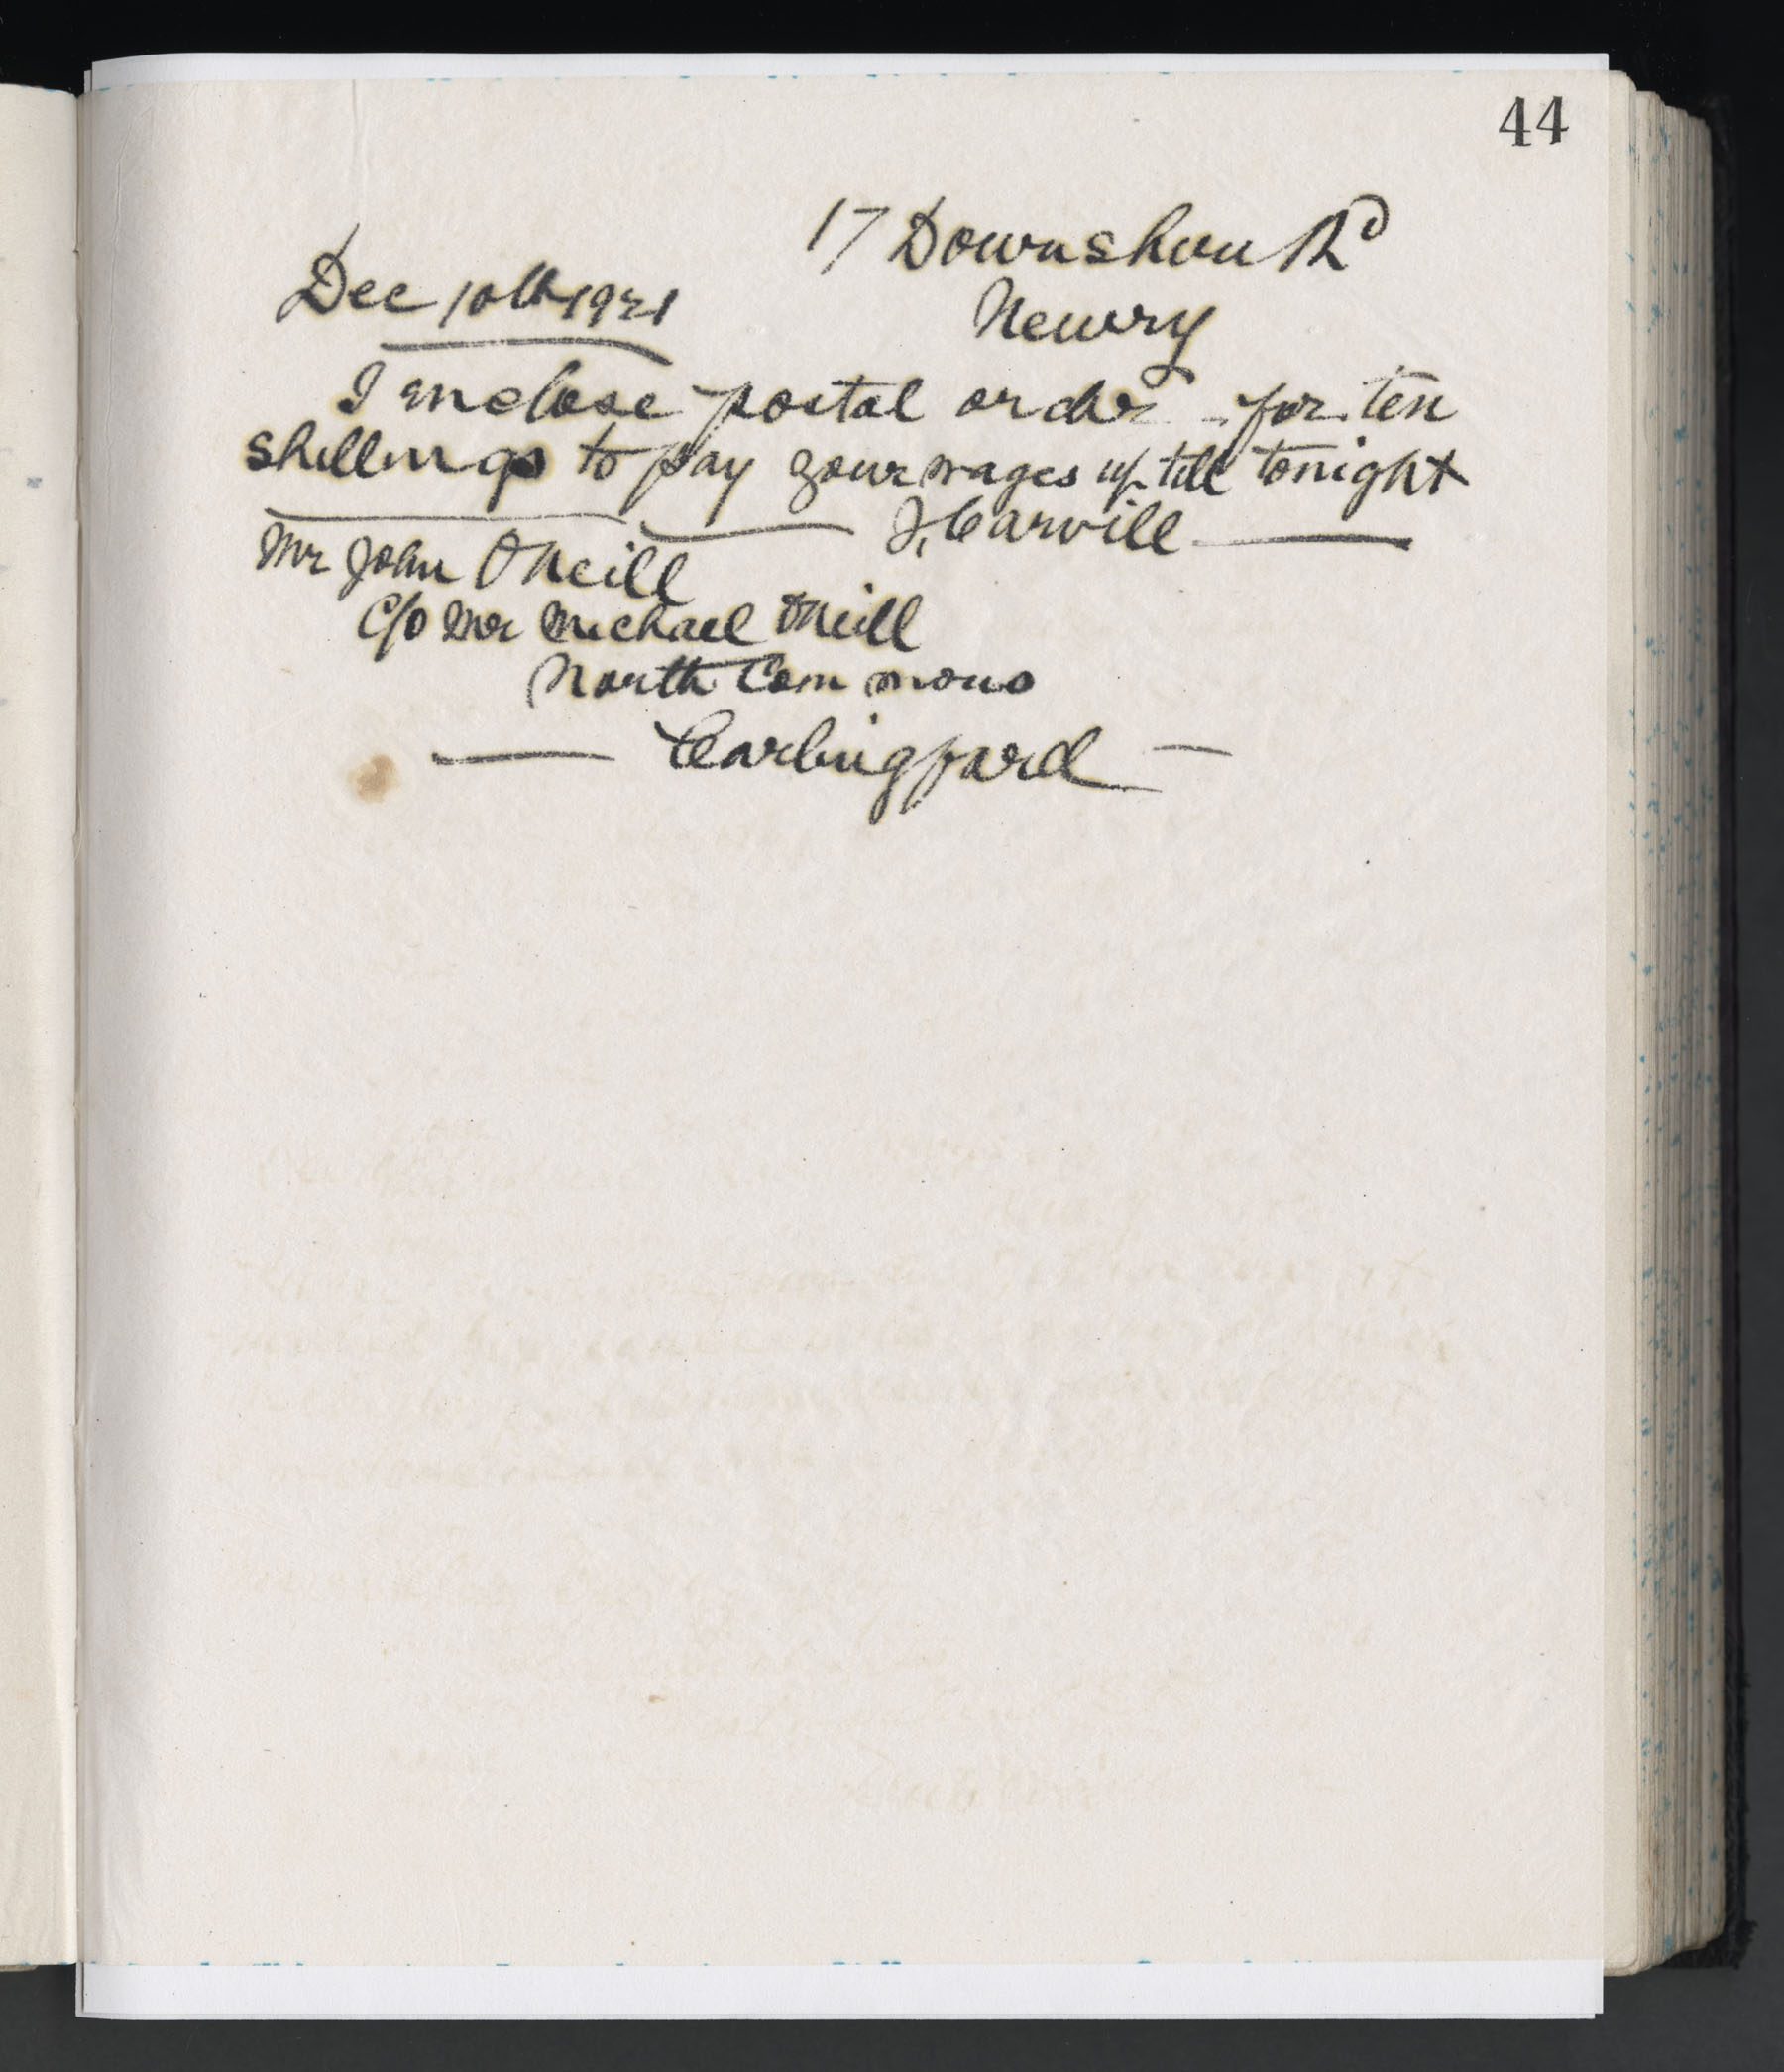 44
17 Downshire Rd
Dec 10th 1921
Newry
I enclose postal order for ten
shillings to pay your wages up till tonight
J. Carvill
Mr John O'Neill
C/o Mr Michael O'Neill
North Commons
Carlingford